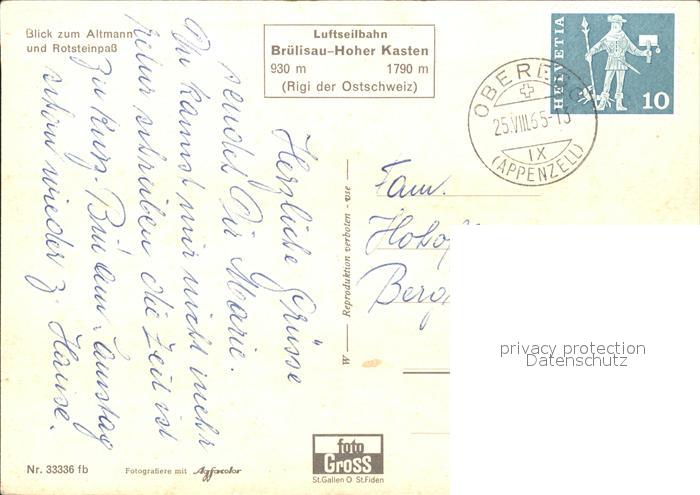 Blick zum Altmann
und Rotsteinpaß
Luftseilbahn
Brülisau-Hoher Kasten
930 m 1790 m
(Rigi der Ostschweiz)
HELVETIA
10
OBERE
25.VIII.65-13
IX
(APPENZELL)
Herzliche Grüsse
sendet Dir Marie.
Du kannst mir nicht mehr
retour schreiben die Zeit ist
zu kurz. Bin am Samstag
schon wieder z. Hause.
W — Reproduktion verboten - vse —
Fam.
Berg
privacy protection
Datenschutz
Nr. 33336 fb
Fotografiere mit Agfacolor
foto
GROSS
St.Gallen O St.Fiden